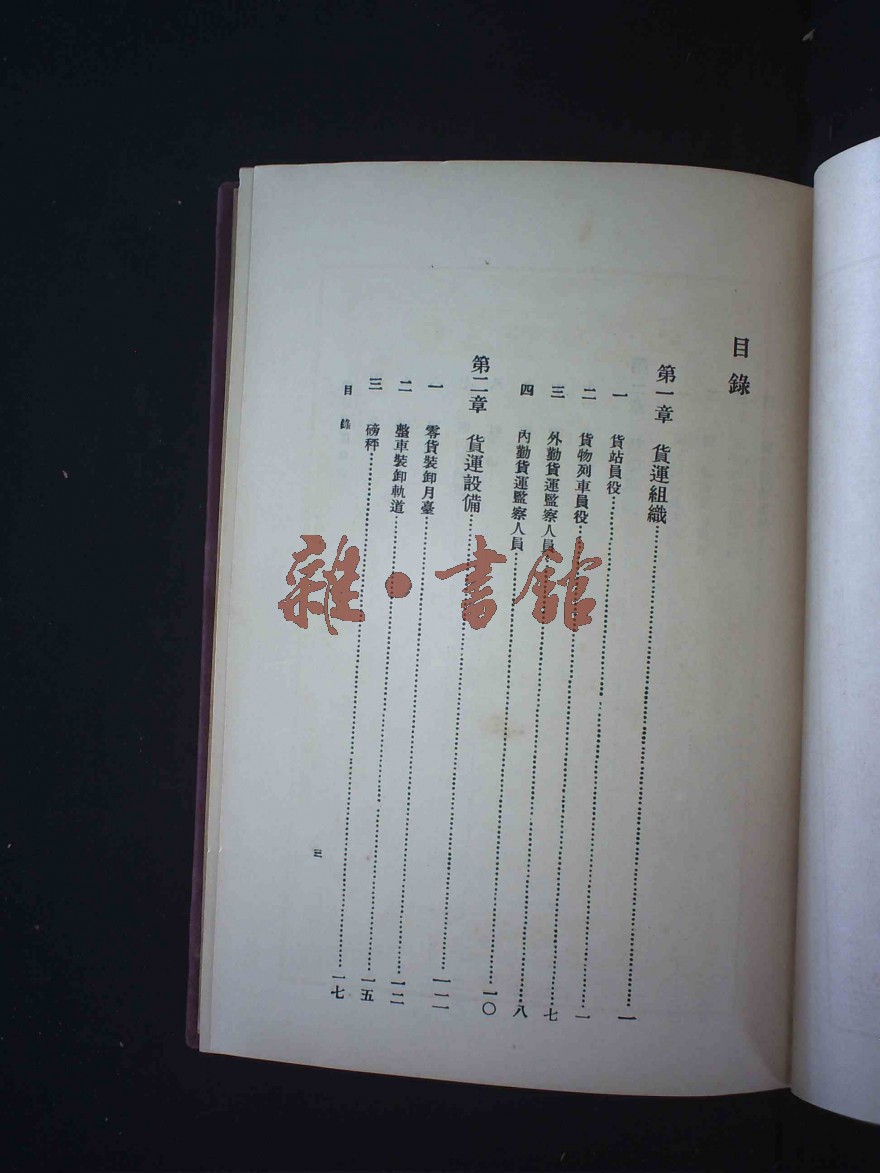 目錄
第一章 貨運組織……一
一 貨站員役……一
二 貨物列車員役……七
三 外勤貨運監察人員……八
四 內勤貨運監察人員……一〇
第二章 貨運設備……一二
一 零貨裝卸月臺……一二
二 整車裝卸軌道……一五
三 磅秤……一七
目錄
雜·書館